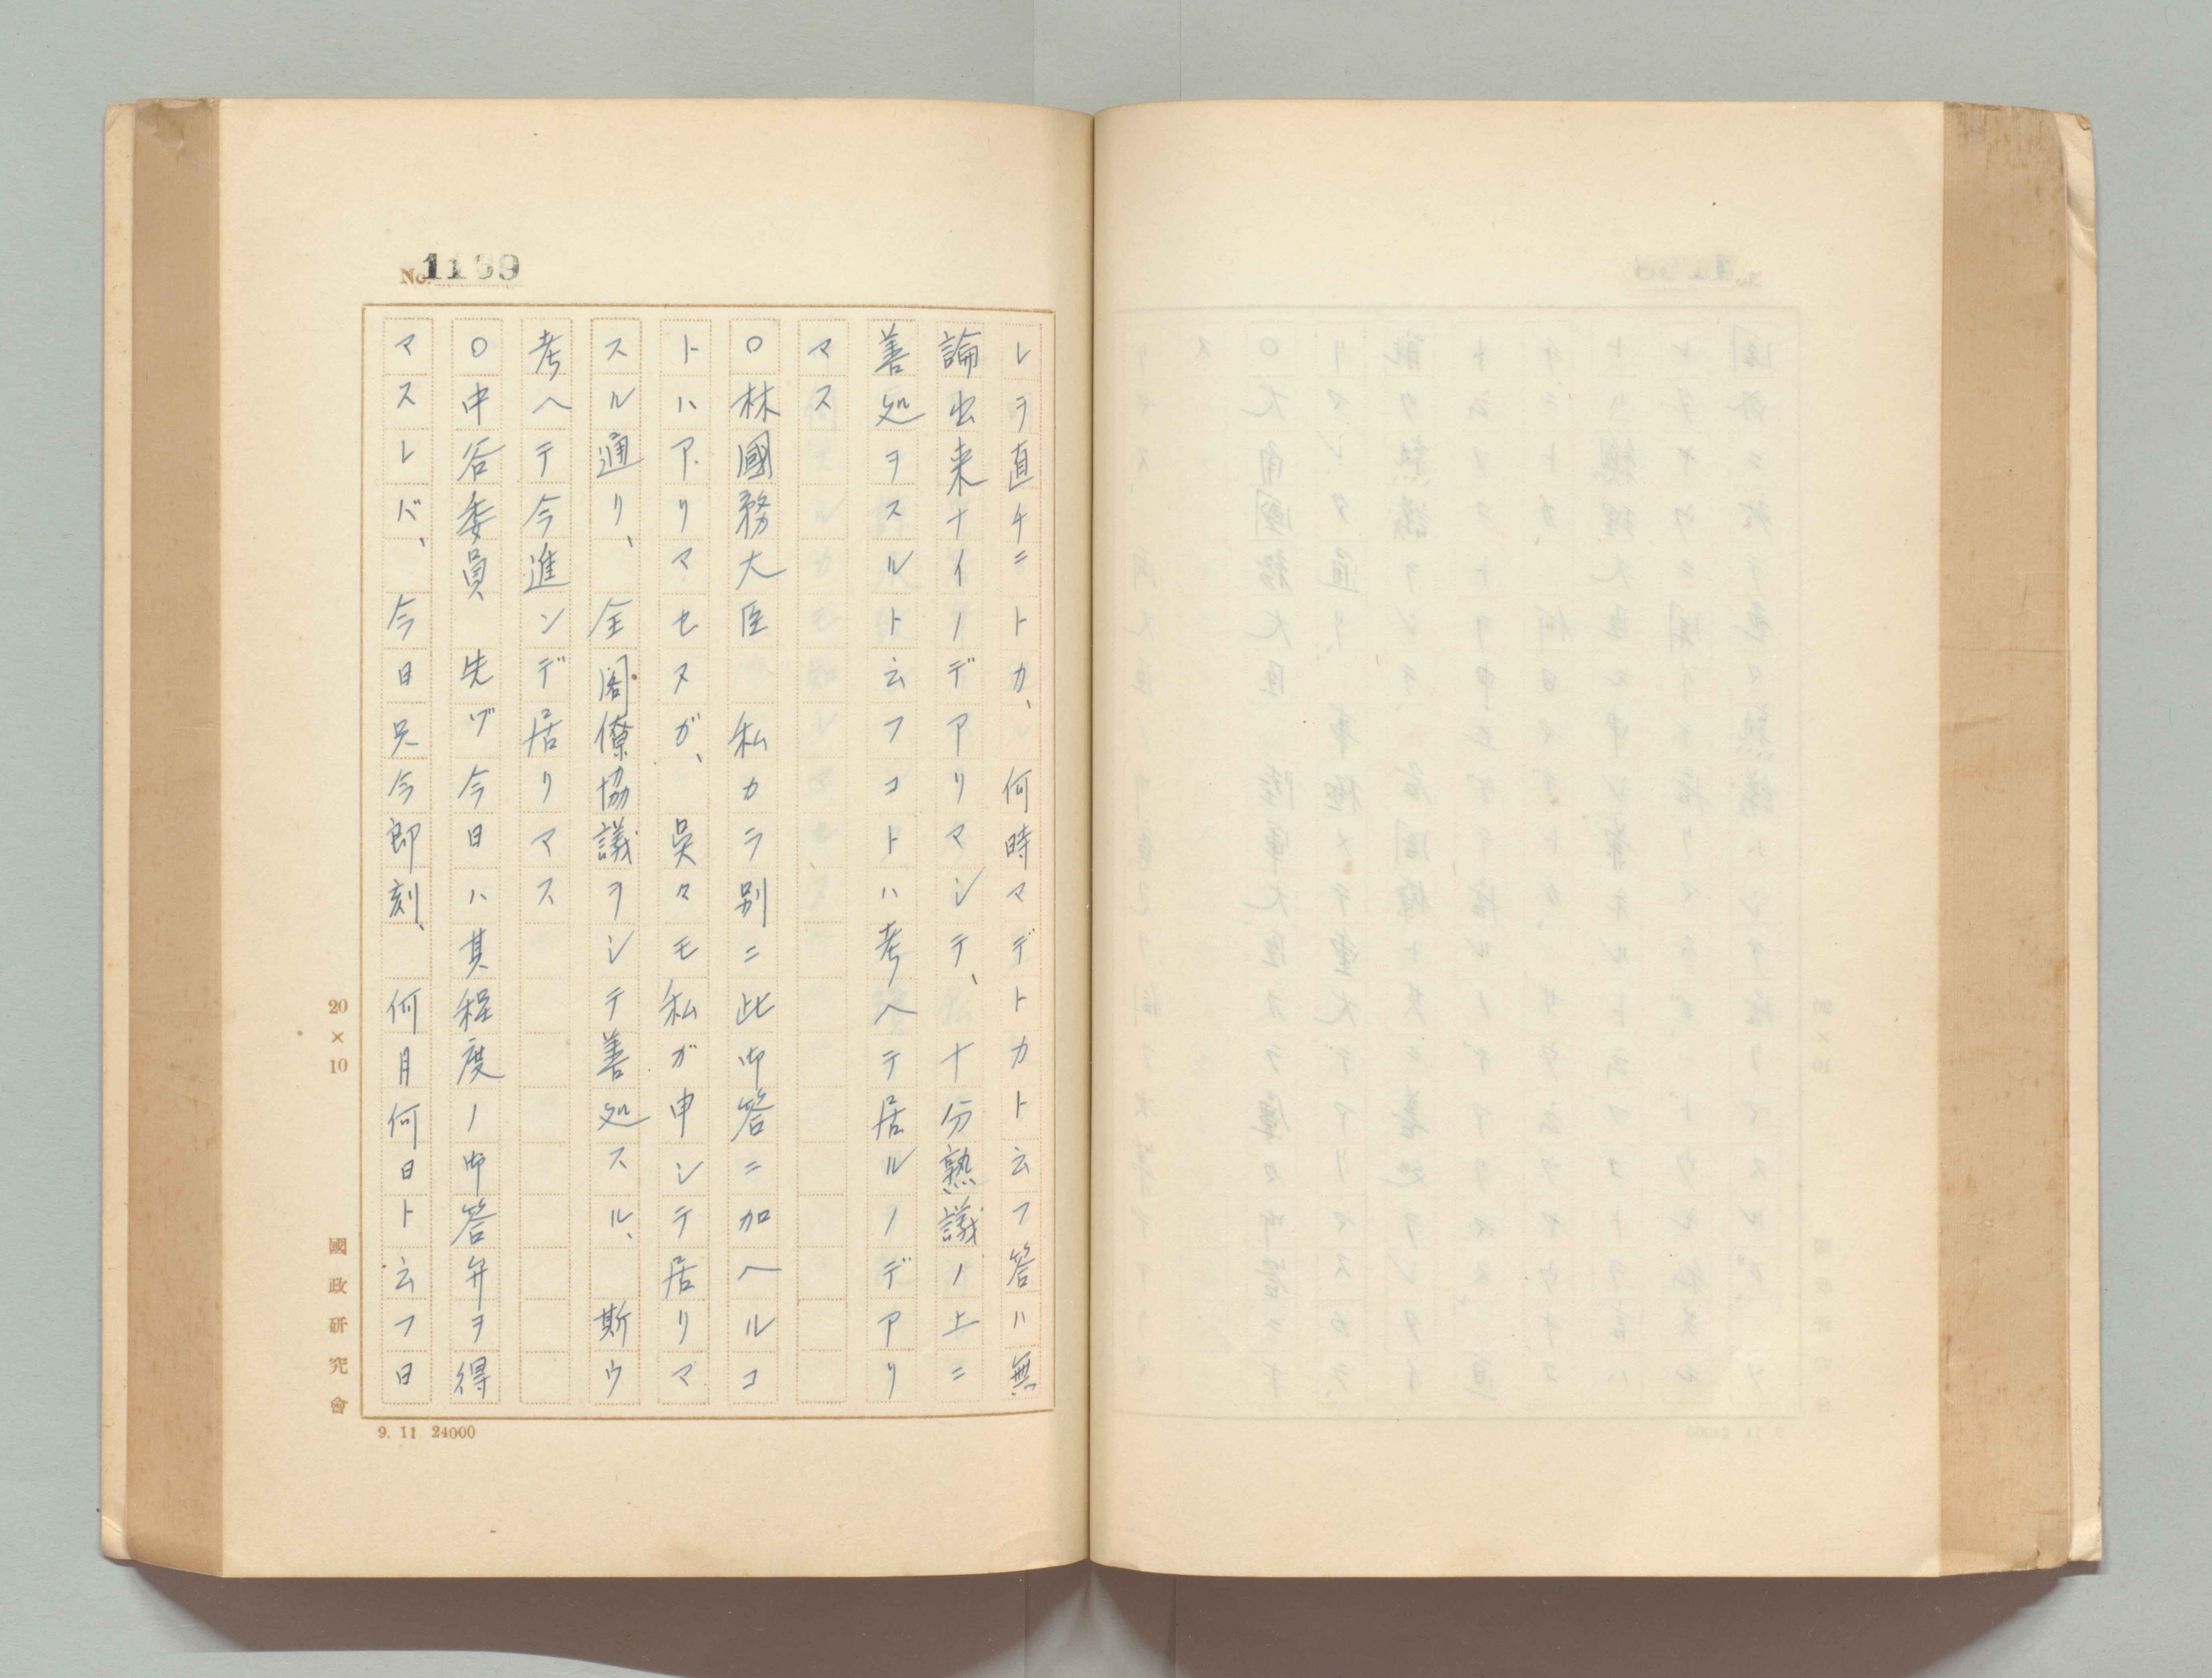 No. 1169
レヲ直チニトカ、何時マデトカト云フ答ハ無
論出来ナイノデアリマシテ、十分熟議ノ上ニ
善処ヲスルト云フコトハ考ヘテ居ルノデアリ
マス
〇林國務大臣 私カラ別ニ此御答ニ加ヘルコ
トハアリマセヌガ、呉々モ私ガ申シテ居リマ
スル通リ、全閣僚協議ヲシテ善処スル、斯ウ
考ヘテ今進ンデ居リマス
〇中谷委員 先ヅ今日ハ其程度ノ御答弁ヲ得
マスレバ、今日只今即刻、何月何日ト云フ日
20×10
國政研究會
9. 11 24000